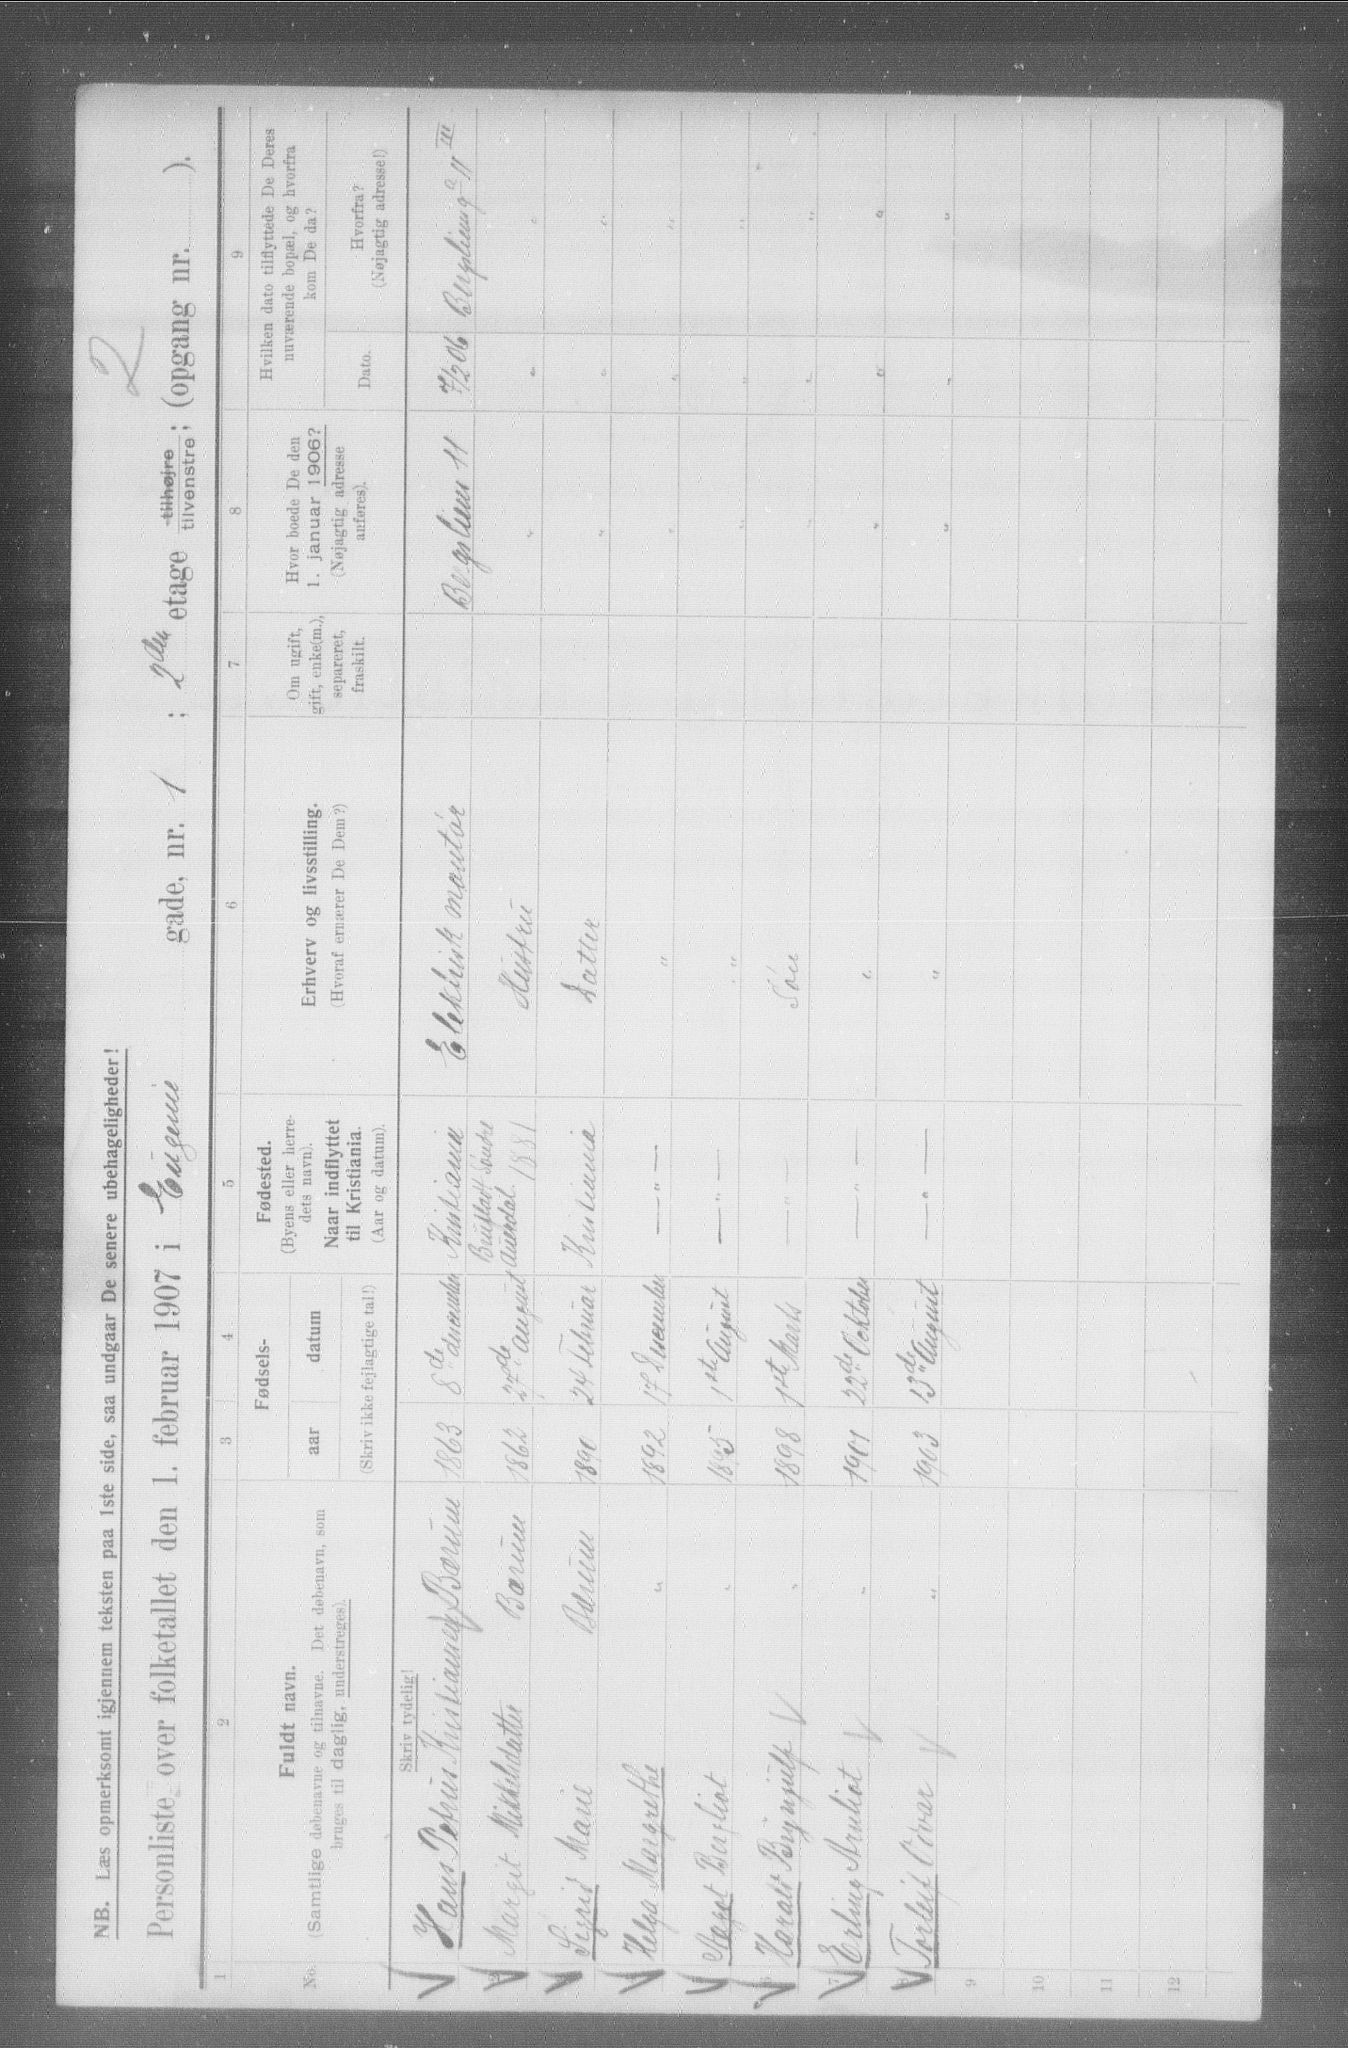 NB. Læs opmerksomt igjennem teksten paa 1ste side, saa undgaar De senere ubehageligheder!
2
Personliste over folketallet den 1. februar 1907 i Eugenie gade, nr. 1 ; 2den etage tilhøjre tilvenstre; (opgang nr. ).
1 2 3 4 5 6 7 8 9
No. Fuldt navn. (Samtlige døbenavne og tilnavne. Det døbenavn, som bruges til daglig, understreges).
Fødsels- aar datum (Skriv ikke fejlagtige tal!)
Fødested. (Byens eller herredets navn). Naar indflyttet til Kristiania. (Aar og datum).
Erhverv og livsstilling. (Hvoraf ernærer De Dem?)
Om ugift, gift, enke(m.), separeret, fraskilt.
Hvor boede De den 1. januar 1906? (Nøjagtig adresse anføres).
Hvilken dato tilflyttede De Deres nuværende bopæl, og hvorfra kom De da?
Dato. Hvorfra? (Nøjagtig adresse!)
Skriv tydelig!
Hans Petrus Kristiansen Bærum 1863 8de december Kristiania Elektrisk montör Bergslien 11 7/2 06 Bergslieng 11 III
Margit Mikkelsdatter Bærum 1862 27de august Aurdal. 1881 Hustru " " "
Sigrid Marie Bærum 1890 24 februar Kristiania Datter " " "
Helga Margrethe " 1892 17 December — " — " " " "
Aagot Bergliot " 1895 1ste August — " — " " " "
6 Harald Brynjulf " 1898 1ste Marts — " — Sön " " "
7 Erling Arnliot " 1901 22de Oktober — " — " " " "
8 Torleif Odvar " 1903 13de August — " — " " " "
9
10
11
12